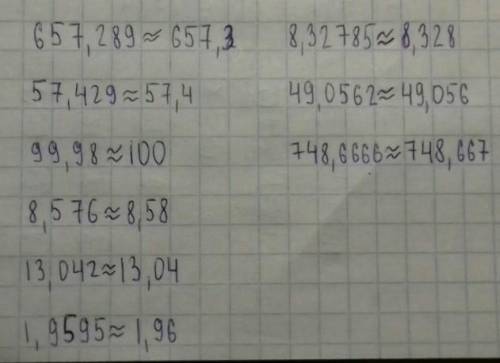 657,289≈657,3
57,429≈57,4
99,98≈100
8,576≈8,58
13,042≈13,04
1,9595≈1,96
8,32785≈8,328
49,0562≈49,056
748,6666≈748,667